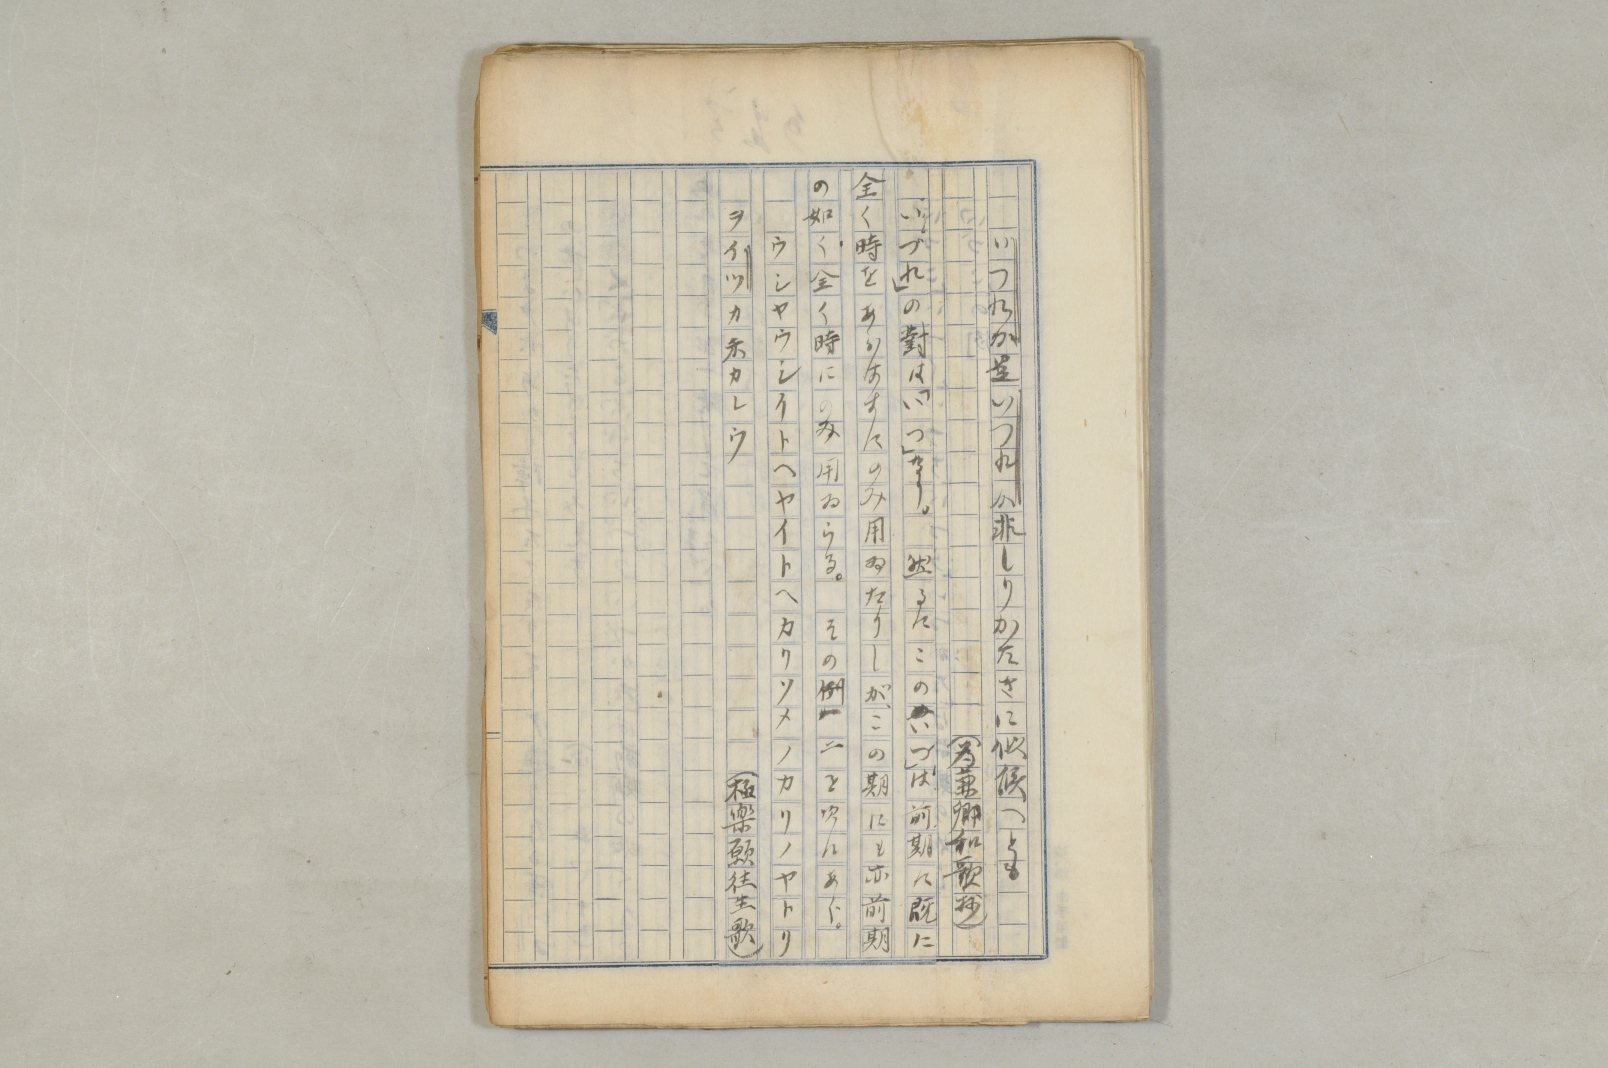 いつれか是いつれか非しりかたさに似候へとも
(為兼卿和歌抄)
「いづれ」の對は「いつ」なり。然るにこの「いつ」は前期に既に
全く時をあらはすにのみ用ゐたりしが、この期にも亦前期
の如く、全く時にのみ用ゐらる。その例一二を次にあぐ。
ウシヤウシイトヘヤイトヘカリソメノカリノヤトリ
ヲイツカホカレウ
(極樂願往生歌)